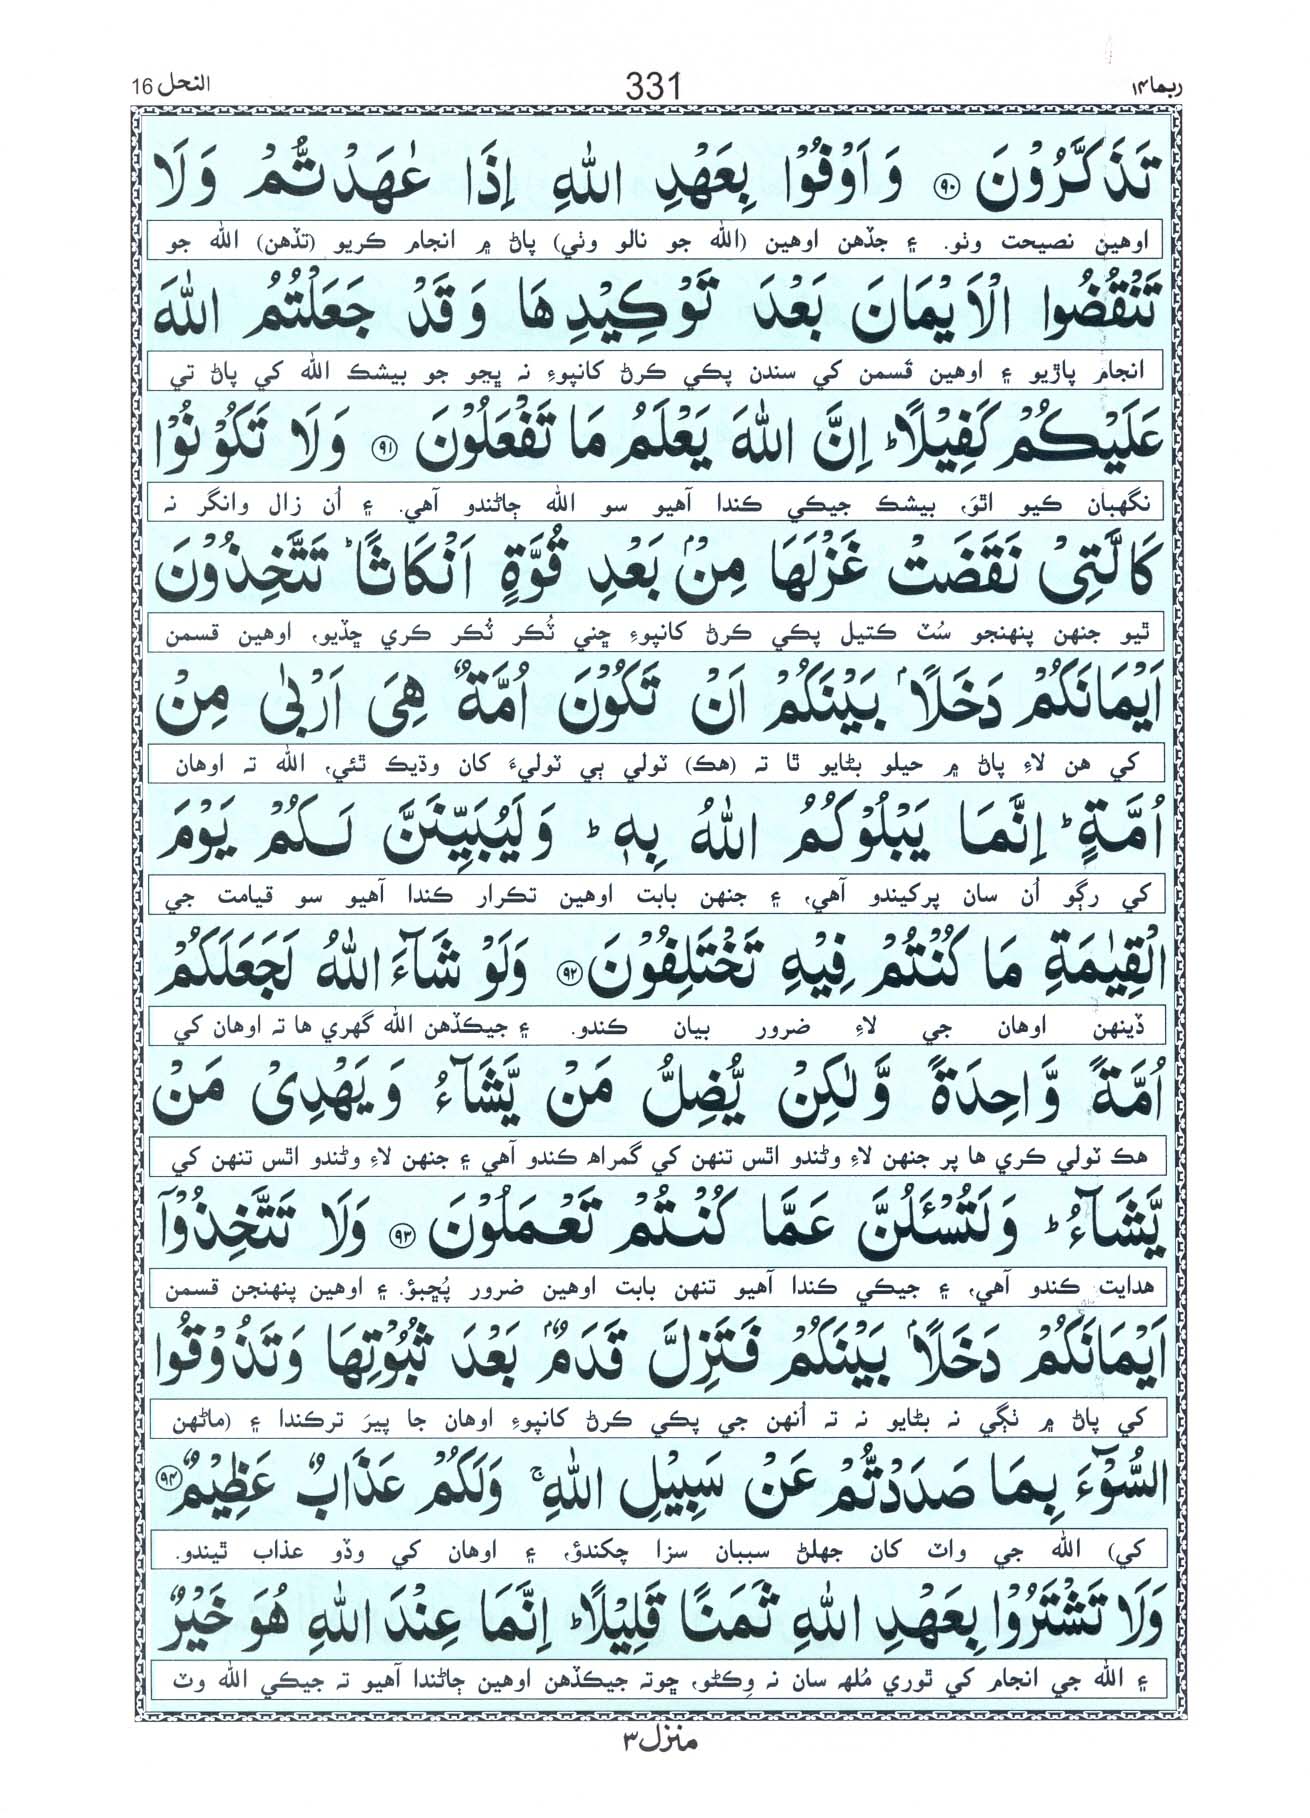 ربما ۱۴ 331 النحل 16
تَذَكَّرُوْنَ ۹۰ وَ اَوْفُوْا بِعَهْدِ اللّٰهِ اِذَا عٰهَدْتُّمْ وَ لَا
اوهين نصيحت وٺو. ۽ جڏهن اوهين (الله جو نالو وٺي) پاڻ ۾ انجام ڪريو (تڏهن) الله جو
تَنْقُضُوا الْاَيْمَانَ بَعْدَ تَوْكِيْدِهَا وَ قَدْ جَعَلْتُمُ اللّٰهَ
انجام پاڙيو ۽ اوهين قسمن کي سندن پڪي ڪرڻ کانپوءِ نہ ڀڃو جو بيشڪ الله کي پاڻ تي
عَلَيْكُمْ كَفِيْلًا ؕ اِنَّ اللّٰهَ يَعْلَمُ مَا تَفْعَلُوْنَ ۹۱ وَ لَا تَكُوْنُوْا
نگهبان ڪيو اٿوَ، بيشڪ جيڪي ڪندا آهيو سو الله ڄاڻندو آهي. ۽ اُن زال وانگر نہ
كَالَّتِيْ نَقَضَتْ غَزْلَهَا مِنْۢ بَعْدِ قُوَّةٍ اَنْكَاثًا ؕ تَتَّخِذُوْنَ
ٿيو جنهن پنهنجو سُٽ ڪتيل پڪي ڪرڻ کانپوءِ ڇني ٽُڪر ٽُڪر ڪري ڇڏيو، اوهين قسمن
اَيْمَانَكُمْ دَخَلًاۢ بَيْنَكُمْ اَنْ تَكُوْنَ اُمَّةٌ هِيَ اَرْبٰى مِنْ
کي هن لاءِ پاڻ ۾ حيلو بڻايو ٿا تہ (هڪ) ٽولي ٻي ٽوليءَ کان وڌيڪ ٿئي، الله تہ اوهان
اُمَّةٍ ؕ اِنَّمَا يَبْلُوْكُمُ اللّٰهُ بِهٖ ؕ وَ لَيُبَيِّنَنَّ لَكُمْ يَوْمَ
کي رڳو اُن سان پرکيندو آهي، ۽ جنهن بابت اوهين تڪرار ڪندا آهيو سو قيامت جي
الْقِيٰمَةِ مَا كُنْتُمْ فِيْهِ تَخْتَلِفُوْنَ ۹۲ وَ لَوْ شَآءَ اللّٰهُ لَجَعَلَكُمْ
ڏينهن اوهان جي لاءِ ضرور بيان ڪندو. ۽ جيڪڏهن الله گهري ها تہ اوهان کي
اُمَّةً وَّاحِدَةً وَّلٰكِنْ يُّضِلُّ مَنْ يَّشَآءُ وَ يَهْدِيْ مَنْ
هڪ ٽولي ڪري ها پر جنهن لاءِ وڻندو اٿس تنهن کي گمراهہ ڪندو آهي ۽ جنهن لاءِ وڻندو اٿس تنهن کي
يَّشَآءُ ؕ وَ لَتُسْـَٔلُنَّ عَمَّا كُنْتُمْ تَعْمَلُوْنَ ۹۳ وَ لَا تَتَّخِذُوْٓا
هدايت ڪندو آهي، ۽ جيڪي ڪندا آهيو تنهن بابت اوهين ضرور پُڇبؤ. ۽ اوهين پنهنجن قسمن
اَيْمَانَكُمْ دَخَلًاۢ بَيْنَكُمْ فَتَزِلَّ قَدَمٌۢ بَعْدَ ثُبُوْتِهَا وَ تَذُوْقُوا
کي پاڻ ۾ ٺڳي نہ بڻايو نہ تہ اُنهن جي پڪي ڪرڻ کانپوءِ اوهان جا پيرَ ترڪندا ۽ (ماڻهن
السُّوْٓءَ بِمَا صَدَدْتُّمْ عَنْ سَبِيْلِ اللّٰهِ ۚ وَ لَكُمْ عَذَابٌ عَظِيْمٌ ۹۴
کي) الله جي واٽ کان جهلڻ سببان سزا چکندؤ، ۽ اوهان کي وڏو عذاب ٿيندو.
وَ لَا تَشْتَرُوْا بِعَهْدِ اللّٰهِ ثَمَنًا قَلِيْلًا ؕ اِنَّمَا عِنْدَ اللّٰهِ هُوَ خَيْرٌ
۽ الله جي انجام کي ٿوري مُلهہ سان نہ وِڪڻو، ڇوتہ جيڪڏهن اوهين ڄاڻندا آهيو تہ جيڪي الله وٽ
منزل ۳